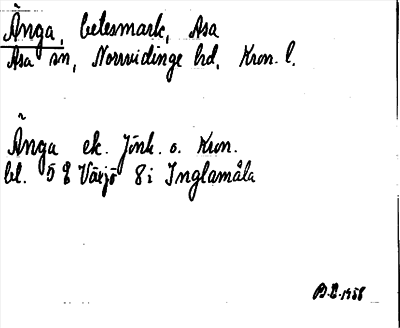 Änga, betesmark, Asa
Asa sn, Norrvidinge hd, Kron. l.
Änga ek. Jönk. o. Kron.
bl. 5 E Växjö 8 i Inglamåla
1958